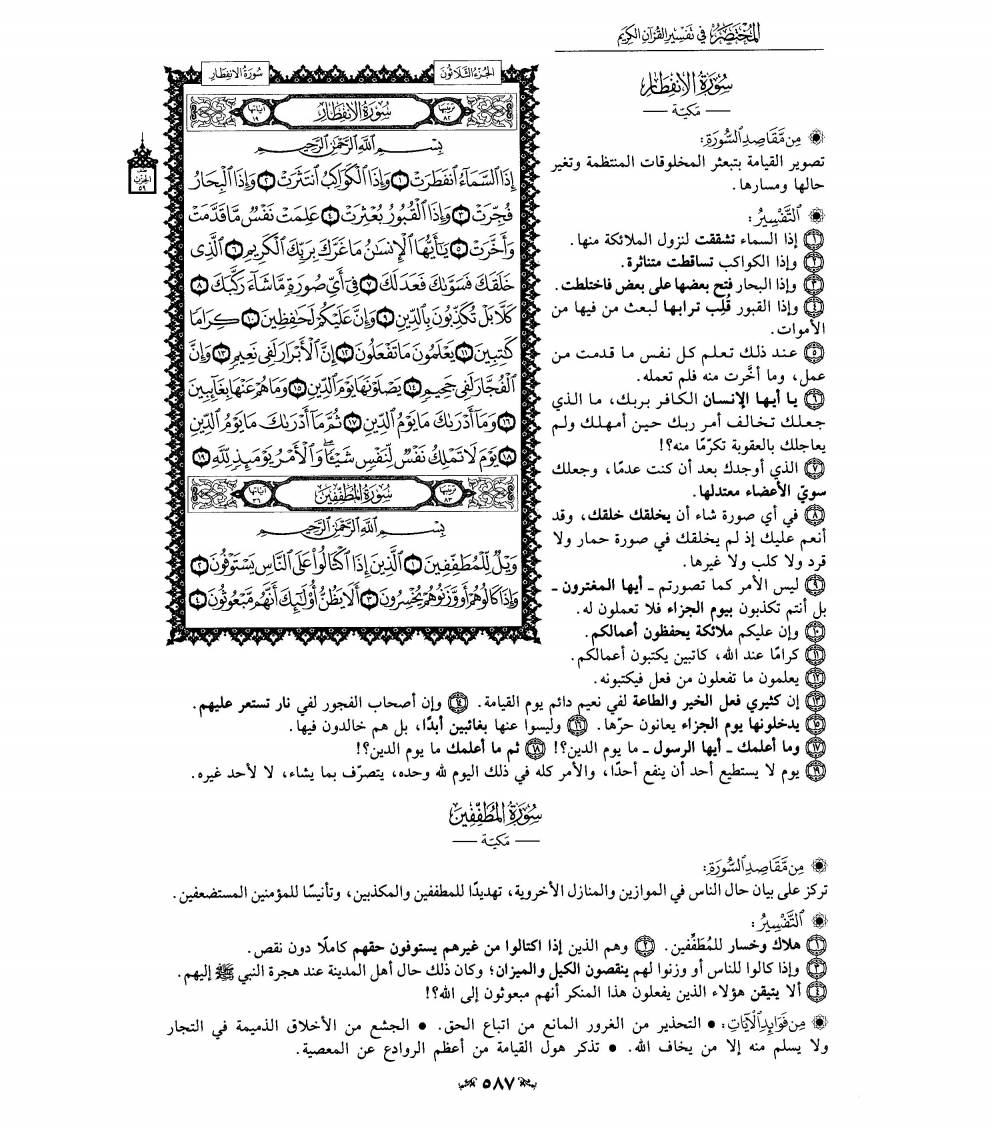 المختصر في تفسير القرآن الكريم
سورة الانفطار
الجزء الثلاثون
سورة الانفطار
ترتيبها ٨٢
سُورَةُ الانفِطَارِ
آياتها ١٩
بِسْمِ اللَّهِ الرَّحْمَٰنِ الرَّحِيمِ
إِذَا السَّمَاءُ انفَطَرَتْ ١ وَإِذَا الْكَوَاكِبُ انتَثَرَتْ ٢ وَإِذَا الْبِحَارُ
فُجِّرَتْ ٣ وَإِذَا الْقُبُورُ بُعْثِرَتْ ٤ عَلِمَتْ نَفْسٌ مَّا قَدَّمَتْ
وَأَخَّرَتْ ٥ يَا أَيُّهَا الْإِنسَانُ مَا غَرَّكَ بِرَبِّكَ الْكَرِيمِ ٦ الَّذِي
خَلَقَكَ فَسَوَّاكَ فَعَدَلَكَ ٧ فِي أَيِّ صُورَةٍ مَّا شَاءَ رَكَّبَكَ ٨
كَلَّا بَلْ تُكَذِّبُونَ بِالدِّينِ ٩ وَإِنَّ عَلَيْكُمْ لَحَافِظِينَ ١٠ كِرَامًا
كَاتِبِينَ ١١ يَعْلَمُونَ مَا تَفْعَلُونَ ١٢ إِنَّ الْأَبْرَارَ لَفِي نَعِيمٍ ١٣ وَإِنَّ
الْفُجَّارَ لَفِي جَحِيمٍ ١٤ يَصْلَوْنَهَا يَوْمَ الدِّينِ ١٥ وَمَا هُمْ عَنْهَا بِغَائِبِينَ
١٦ وَمَا أَدْرَاكَ مَا يَوْمُ الدِّينِ ١٧ ثُمَّ مَا أَدْرَاكَ مَا يَوْمُ الدِّينِ
١٨ يَوْمَ لَا تَمْلِكُ نَفْسٌ لِّنَفْسٍ شَيْئًا وَالْأَمْرُ يَوْمَئِذٍ لِّلَّهِ ١٩
ترتيبها ٨٣
سُورَةُ المُطَفِّفِينَ
آياتها ٣٦
بِسْمِ اللَّهِ الرَّحْمَٰنِ الرَّحِيمِ
وَيْلٌ لِّلْمُطَفِّفِينَ ١ الَّذِينَ إِذَا اكْتَالُوا عَلَى النَّاسِ يَسْتَوْفُونَ ٢
وَإِذَا كَالُوهُمْ أَو وَّزَنُوهُمْ يُخْسِرُونَ ٣ أَلَا يَظُنُّ أُولَٰئِكَ أَنَّهُم مَّبْعُوثُونَ ٤
الحزب
٥٩
— مكية —
من مقاصد السورة:
تصوير القيامة بتبعثر المخلوقات المنتظمة وتغير
حالها ومسارها.
التفسير:
١ إذا السماء تشققت لنزول الملائكة منها.
٢ وإذا الكواكب تساقطت متناثرة.
٣ وإذا البحار فتح بعضها على بعض فاختلطت.
٤ وإذا القبور قُلِب ترابها لبعث من فيها من
الأموات.
٥ عند ذلك تعلم كل نفس ما قدمت من
عمل، وما أخَّرت منه فلم تعمله.
٦ يا أيها الإنسان الكافر بربك، ما الذي
جعلك تخالف أمر ربك حين أمهلك ولم
يعاجلك بالعقوبة تكرّمًا منه؟!
٧ الذي أوجدك بعد أن كنت عدمًا، وجعلك
سويّ الأعضاء معتدلها.
٨ في أي صورة شاء أن يخلقك خلقك، وقد
أنعم عليك إذ لم يخلقك في صورة حمار ولا
قرد ولا كلب ولا غيرها.
٩ ليس الأمر كما تصورتم ـ أيها المغترون ـ
بل أنتم تكذبون بيوم الجزاء فلا تعملون له.
١٠ وإن عليكم ملائكة يحفظون أعمالكم.
١١ كرامًا عند الله، كاتبين يكتبون أعمالكم.
١٢ يعلمون ما تفعلون من فعل فيكتبونه.
١٣ إن كثيري فعل الخير والطاعة لفي نعيم دائم يوم القيامة. ١٤ وإن أصحاب الفجور لفي نار تستعر عليهم.
١٥ يدخلونها يوم الجزاء يعانون حرّها. ١٦ وليسوا عنها بغائبين أبدًا، بل هم خالدون فيها.
١٧ وما أعلمك ـ أيها الرسول ـ ما يوم الدين؟! ١٨ ثم ما أعلمك ما يوم الدين؟!
١٩ يوم لا يستطيع أحد أن ينفع أحدًا، والأمر كله في ذلك اليوم لله وحده، يتصرّف بما يشاء، لا لأحد غيره.
سورة المطففين
— مكية —
من مقاصد السورة:
تركز على بيان حال الناس في الموازين والمنازل الأخروية، تهديدًا للمطففين والمكذبين، وتأنيسًا للمؤمنين المستضعفين.
التفسير:
١ هلاك وخسار للمُطَفِّفين. ٢ وهم الذين إذا اكتالوا من غيرهم يستوفون حقهم كاملًا دون نقص.
٣ وإذا كالوا للناس أو وزنوا لهم ينقصون الكيل والميزان؛ وكان ذلك حال أهل المدينة عند هجرة النبي ﷺ إليهم.
٤ ألا يتيقن هؤلاء الذين يفعلون هذا المنكر أنهم مبعوثون إلى الله؟!
من فوائد الآيات: • التحذير من الغرور المانع من اتباع الحق. • الجشع من الأخلاق الذميمة في التجار
ولا يسلم منه إلا من يخاف الله. • تذكر هول القيامة من أعظم الروادع عن المعصية.
٥٨٧